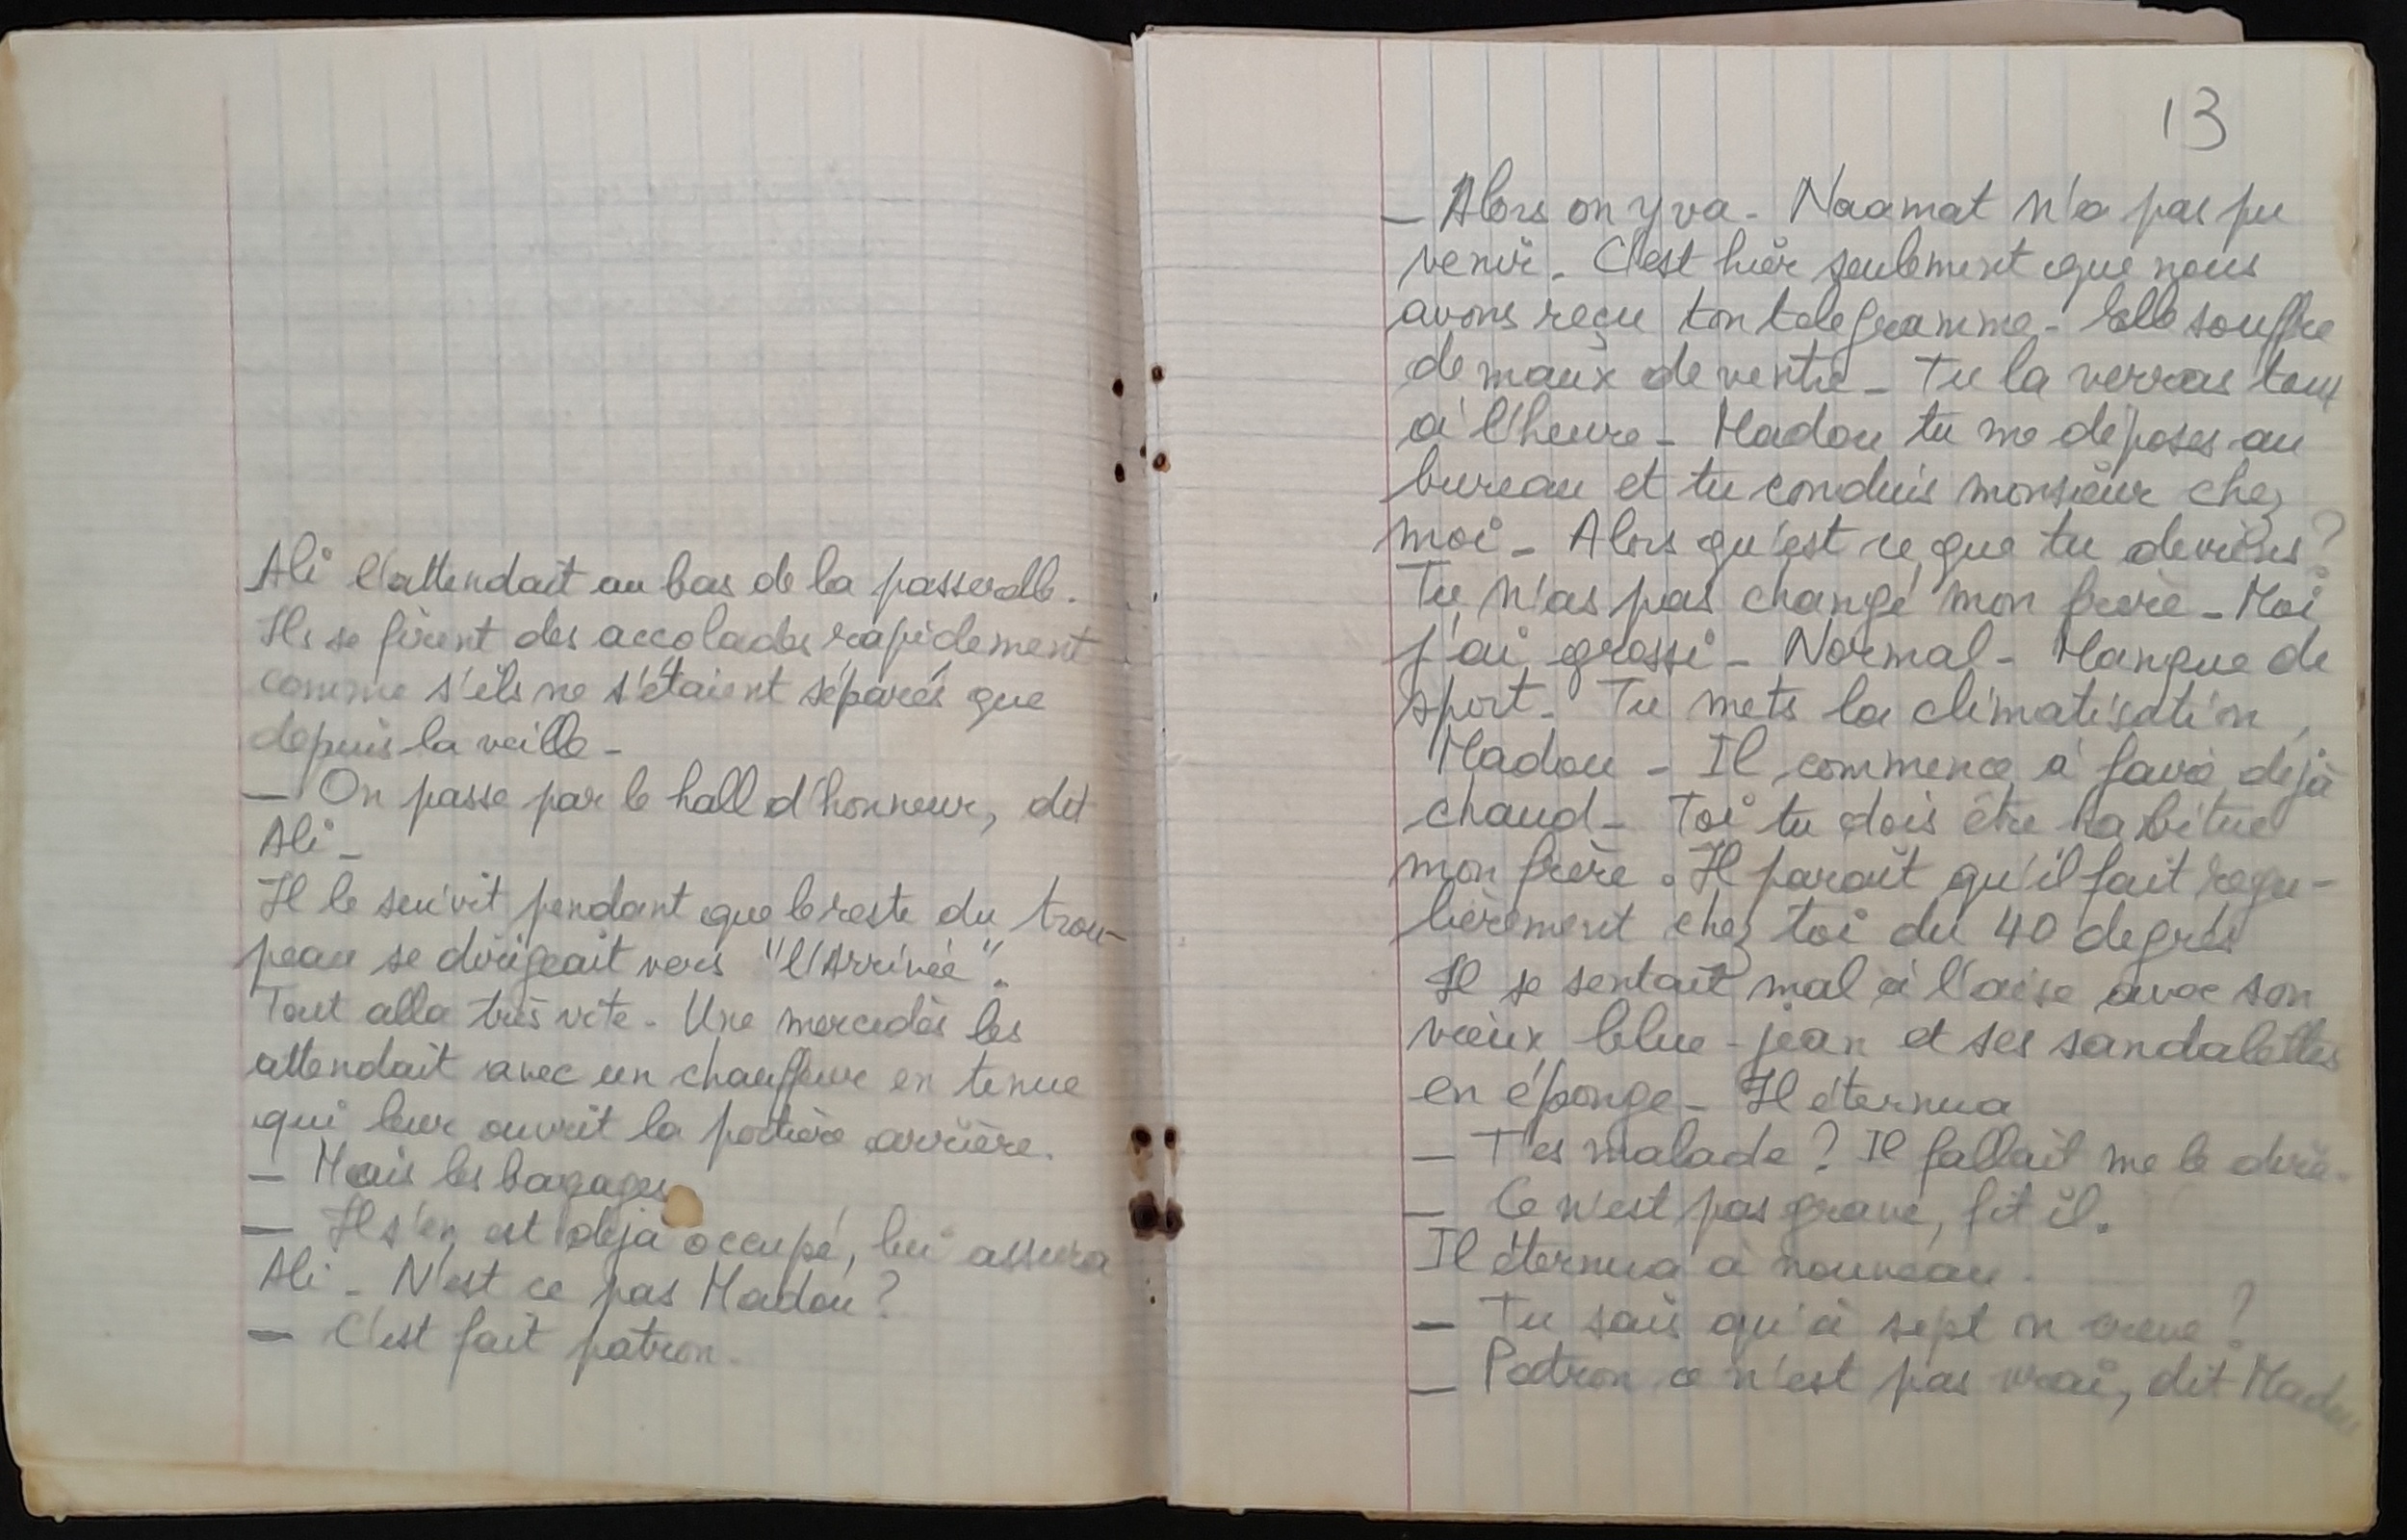 Ali l'attendait au bas de la passerelle.
Ils se firent des accolades rapidement
comme s'ils ne s'étaient séparés que
depuis la veille -
— On passe par le hall d'honneur, dit
Ali -
Il le suivit pendant que le reste du trou-
peau se dirigeait vers "l'Arrivée".
Tout alla très vite - Une mercedès les
attendait avec un chauffeur en tenue
qui leur ouvrit la portière arrière.
— Mais les bagages
— Il s'en est déjà occupé, lui assura
Ali - N'est ce pas Madou ?
— C'est fait patron.
13
— Alors on y va - Naamat n'a pas pu
venir - C'est hier seulement que nous
avons reçu ton télégramme - Elle souffre
de maux de ventre - Tu la verras tout
à l'heure - Madou tu me déposes au
bureau et tu conduis monsieur chez
moi - Alors qu'est ce que tu deviens ?
Tu n'as pas changé mon frère - Moi
j'ai grossi - Normal - Manque de
sport - Tu mets la climatisation,
Madou - Il commence à faire déjà
chaud - Toi tu dois être habitué
mon frère. Il paraît qu'il fait régu-
lièrement chez toi du 40 degrés
Il se sentait mal à l'aise avec son
vieux blue-jean et ses sandalettes
en éponge - Il éternua
— T'es malade ? Il fallait me le dire -
— Ce n'est pas grave, fit il.
Il éternua à nouveau.
— Tu sais qu'à sept on crève ?
— Patron ce n'est pas vrai, dit Madou